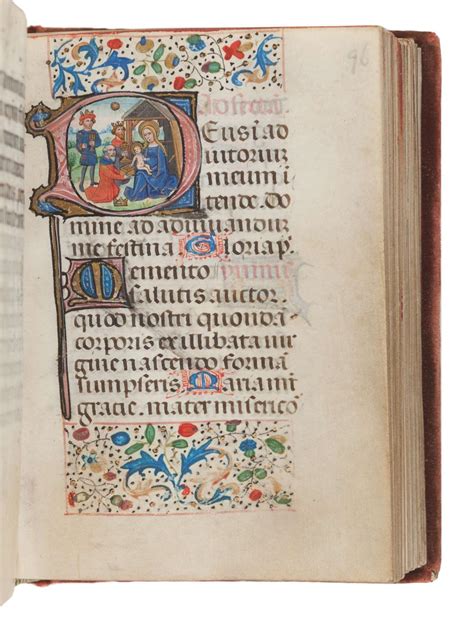 96
Ad sextā
Deus ī ad
iutoriuʒ
meum i
tende. Do
mine ad adiuuandum
me festina Gloria p.
Memento
salutis auctor
quod nostri quondā
corporis ex illibata uir
gine nascendo formā
sumpseris Maria mr̄
gracie. mater miserico